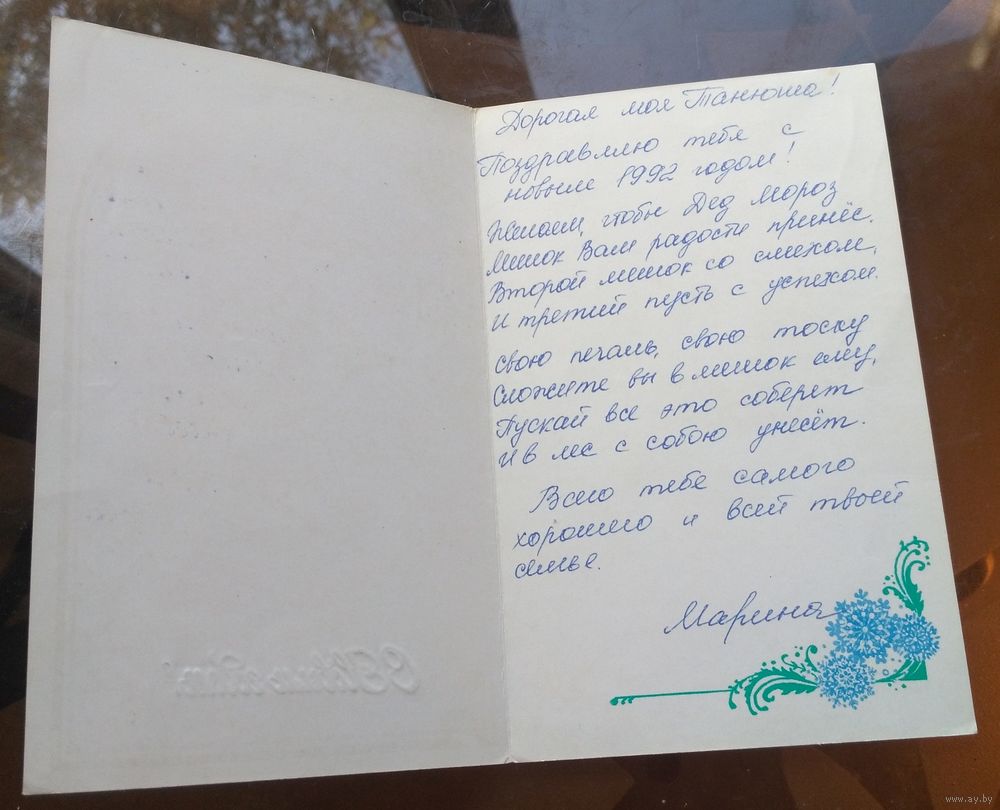 Дорогая моя Танюша!
Поздравляю тебя с
новым 1992 годом!
Желаем, чтобы Дед Мороз
Мешок Вам радости принёс.
Второй мешок со смехом,
И третий пусть с успехом.
Свою печаль, свою тоску
Сложите вы в мешок ему,
Пускай все это соберет
И в лес с собою унесёт.
Всего тебе самого
хорошего и всей твоей
семье.
Марина
С Новым годом!
www.ay.by